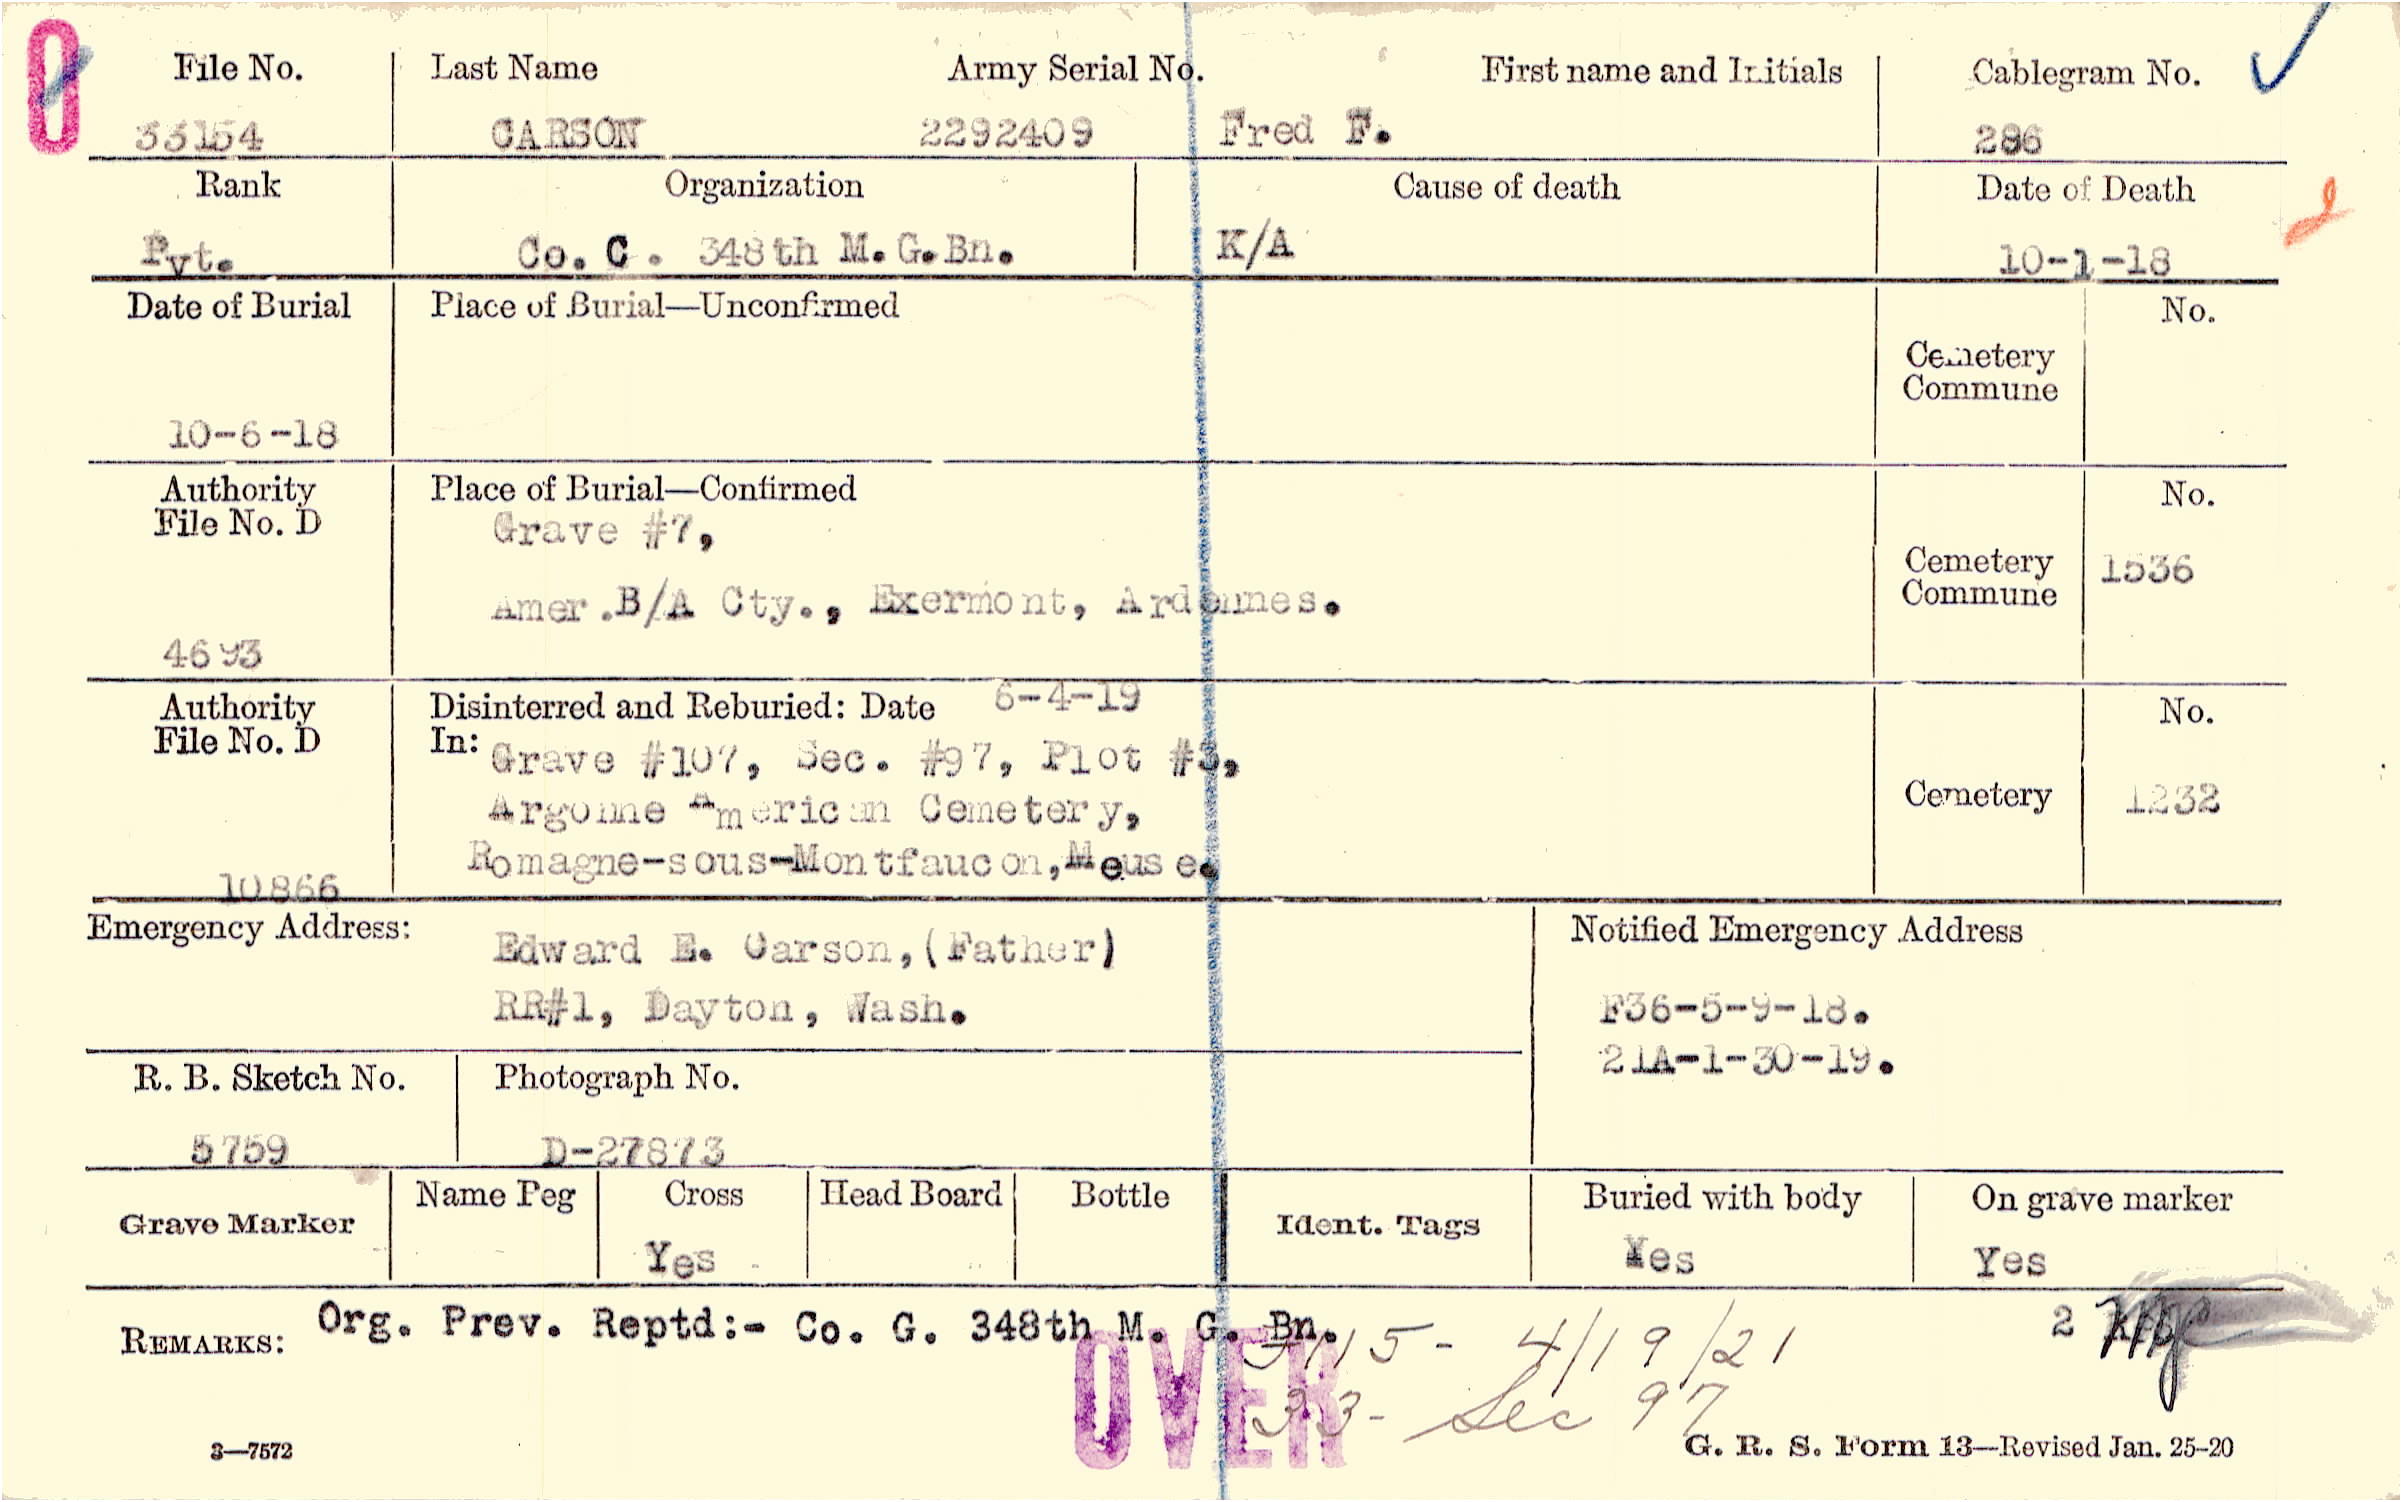 0
File No. Last Name Army Serial No. First name and Initials Cablegram No.
33154 CARSON 2292409 Fred F. 286
Rank Organization Cause of death Date of Death
Pvt. Co. C. 348th M.G.Bn. K/A 10-1-18
Date of Burial Place of Burial—Unconfirmed No.
Cemetery
Commune
10-6-18
Authority Place of Burial—Confirmed No.
File No. D Grave #7,
Cemetery 1536
Commune
Amer.B/A Cty., Exermont, Ardennes.
4693
Authority Disinterred and Reburied: Date 6-4-19 No.
File No. D In: Grave #107, Sec. #97, Plot #3,
Argonne American Cemetery, Cemetery 1232
Romagne-sous-Montfaucon,Meuse.
10866
Emergency Address: Edward E. Carson,(Father) Notified Emergency Address
RR#1, Dayton, Wash. F36-5-9-18.
21A-1-30-19.
R. B. Sketch No. Photograph No.
5759 D-27873
Grave Marker Name Peg Cross Head Board Bottle Ident. Tags Buried with body On grave marker
Yes Yes Yes
REMARKS: Org. Prev. Reptd:- Co. G. 348th M. G. Bn. 2
4/19/21
OVER
33- Sec 97
3—7572 G. R. S. Form 13—Revised Jan. 25-20